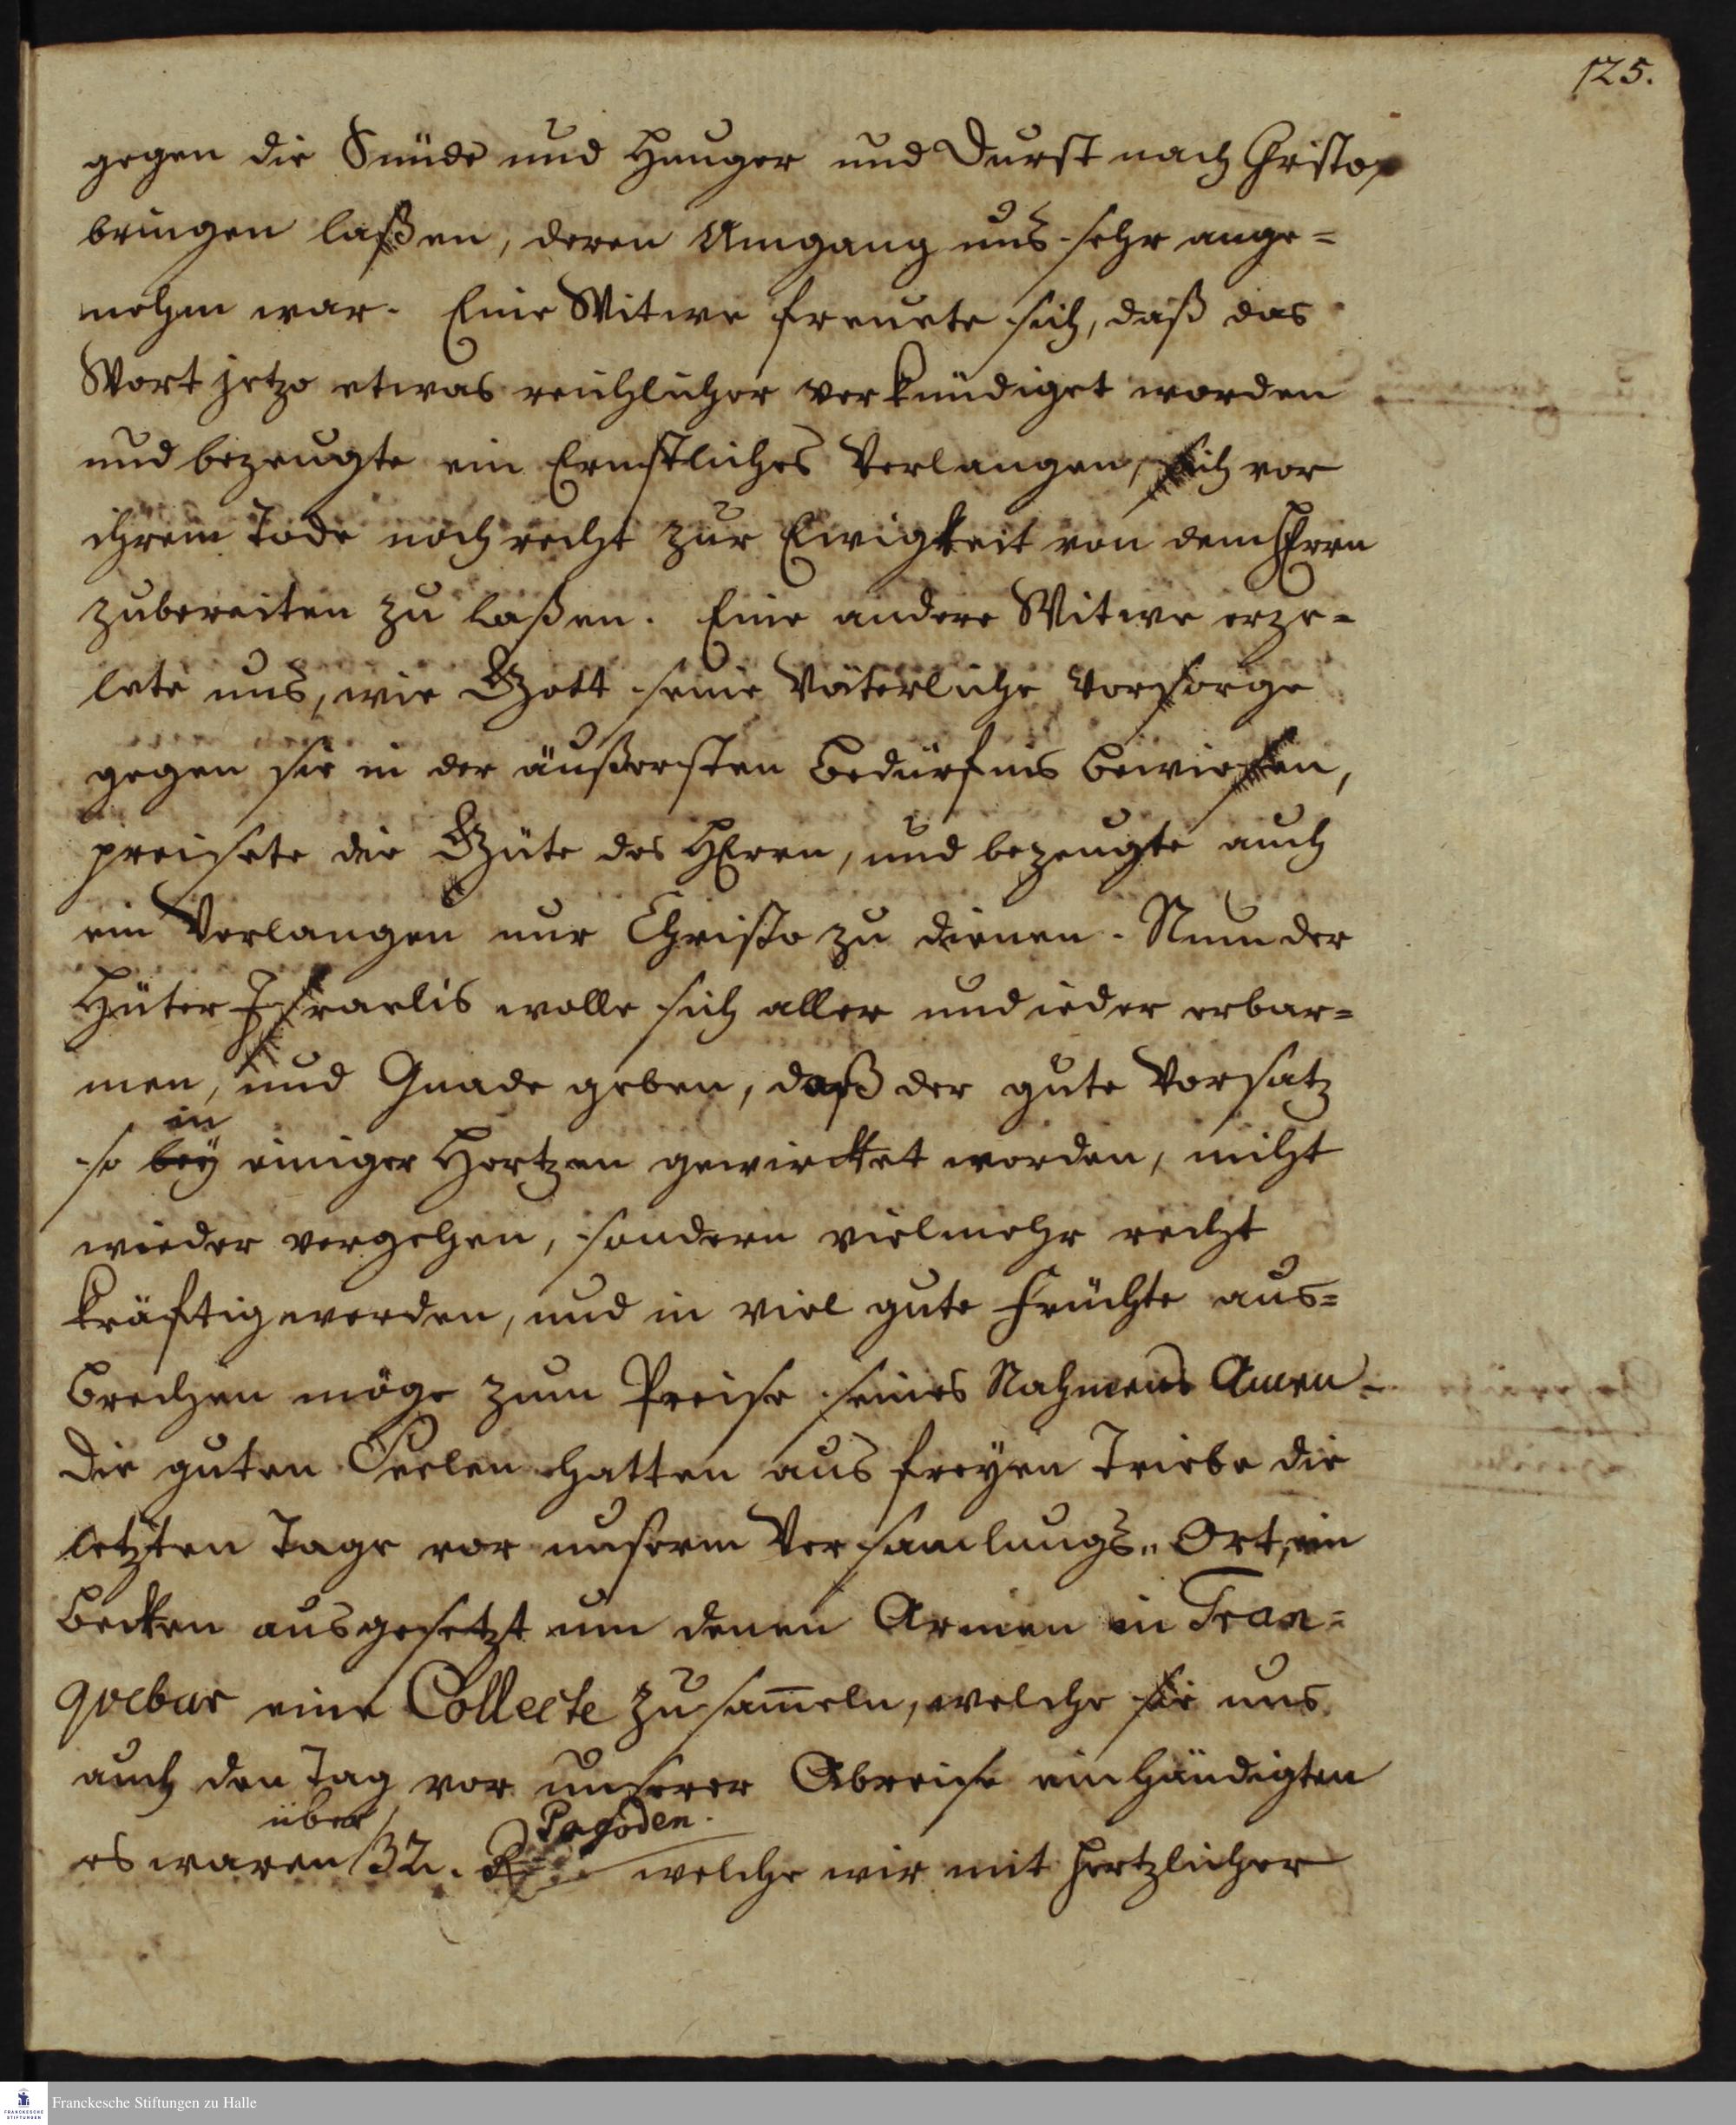 125.
gegen die Sünde und Hunger und Durst nach Christo
bringen laßen, deren Umgang uns sehr ange=
nehm war. Eine Witwe freuete sich, daß das
Wort jetzo etwas reichlicher verkündiget worden
und bezeugte ein Ernstliches Verlangen, sich vor
ihrem Tode noch recht zur Ewigkeit von dem HErrn
zubereiten zu laßen. Eine andere Witwe erze=
lete uns, wie Gott seine Väterliche Vorsorge
gegen sie in der äußersten Bedürfnis bewiesen,
preisete die Güte des HErrn, und bezeugte auch
ein Verlangen nur Christo zu dienen. Nun der
Hüter Israelis wolle sich aller und ieder erbar=
men, und Gnade geben, daß der gute Vorsatz
in
so bey einiger Hertzen gewircket worden, nicht
wieder vergehen, sondern vielmehr recht
kräftig werden, und in viel gute Früchte aus=
brechen möge zum Preise seines Nahmens Amen.
Die guten Seelen hatten aus freyen Triebe die
letzten Tage vor unserm Versamlungs-Ort, ein
Becken ausgesetzt um denen Armen in Tran=
quebar eine Collecte zu sam̄eln, welche sie uns
auch den Tag vor unserer Abreise einhändigten
über Pagoden.
es waren 32. welche wir mit hertzlicher
Franckesche Stiftungen zu Halle